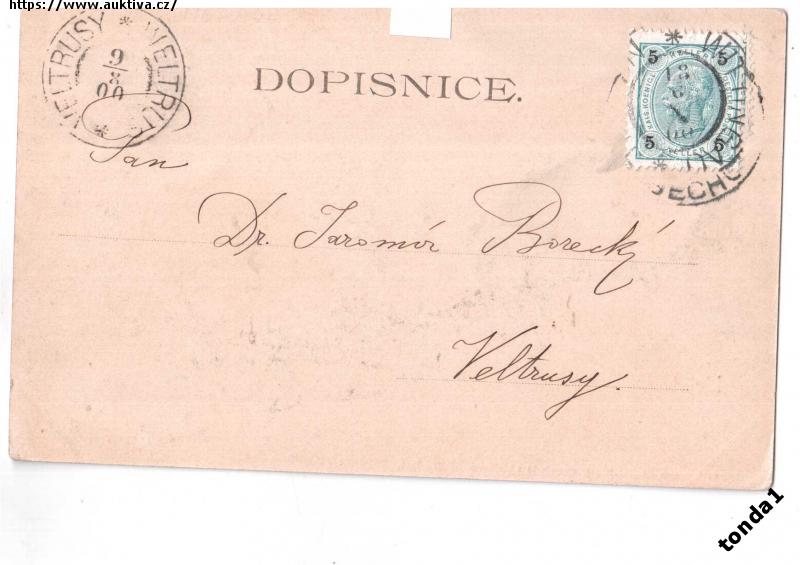 https://www.auktiva.cz/
VELTRUSY * WELTRUS
9
8
00
DOPISNICE.
5 5
HELLER
5 5
HELLER
Pan
Dr. Jaromír Borecký
Veltrusy.
tonda1